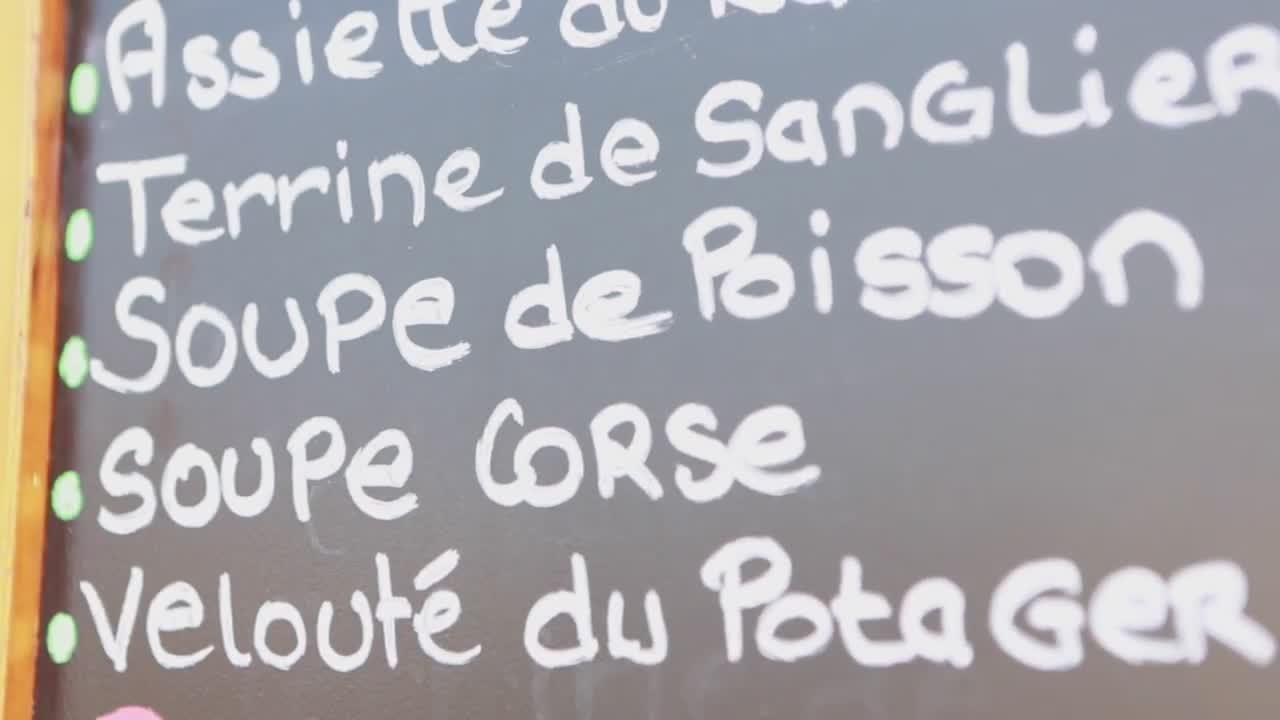 Assiette du
Terrine de Sanglier
Soupe de Poisson
Soupe Corse
Velouté du Potager